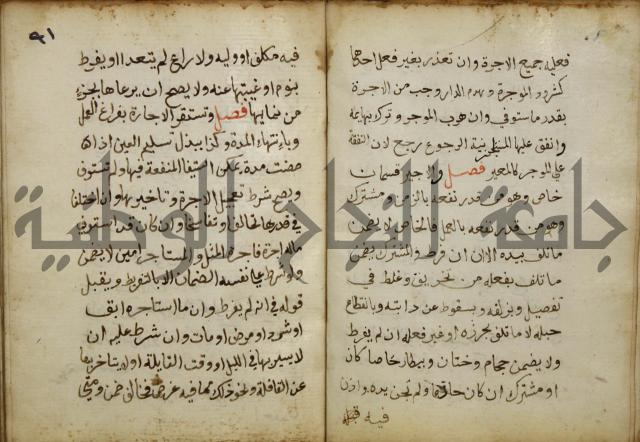 فعليه جميع الاجرة وان تعذر بغير فعل احدهما
كشرود الموجرة وهدم الدار وجب من الاجرة
بقدر ما ستوفى وان هرب الموجر وترك بهائمه
وانفق عليها المستاجر بنية الرجوع رجع لان النفقة
على الموجر كالمعير فصل والاجير قسمان
خاص وهو من قدر نفعه بالزمن ومشترك
وهو من قدر نفعه بالعمل فالخاص لا يضمن
ما تلف بيده الا ان فرط والمشترك يضمن
ما تلف بفعله من تخريق وغلط في
تفصيل وبزلقه وبسقوط عن دابته وبانقطاع
حبله لا ما تلف بحرزه او غير فعله ان لم يفرط
ولا يضمن حجام وختان وبيطار خاصا كان
او مشترك ان كان حاذقا ولم تجن يده واذن
فيه
٩١
فيه مكلف او وليه ولا راع لم يتعدا او يفرط
بنوم او غيبتها عنه ولا يصح ان يرعاها بجزء
من نمايها فصل وتستقر الاجارة بفراغ العمل
وبانتهاء المدة وكذا ببذل تسليم العين اذا
مضت مدة يمكن استيفا المنفعة فيها ولم تستوف
ويصح شرط تعجيل الاجرة وتاخيرها وان اختلفا
في قدرها تحالفا وتفاسخا وان كان قد استوفى
ماله اجرة فاجرة المثل والمستاجر امين لا يضمن
ولو شرط على نفسه الضمان الا بالتفريط ويقبل
قوله في انه لم يفرط وان ما استاجره ابق
او شرد او مرض او مات وان شرط عليه ان
لا يسير بها في الليل او وقت القايلة او لا يتاخر بها
عن القافلة ونحو ذلك مما فيه غرض فخالف ضمن ومتى
جامعة النجاح الوطنية